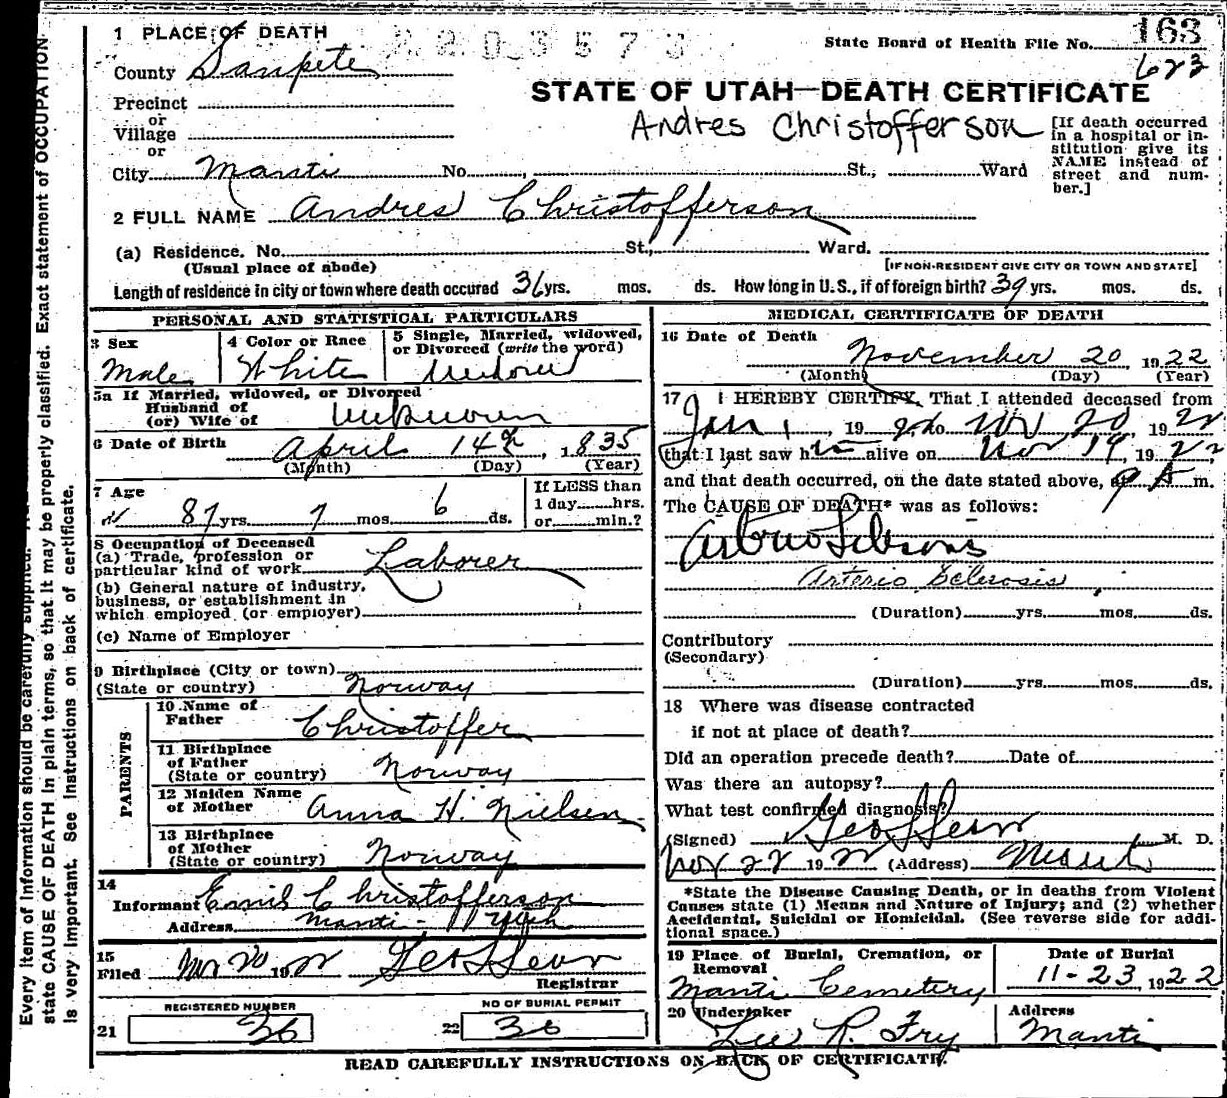 1 PLACE OF DEATH
2203573
State Board of Health File No. 163
623
County Sanpete
STATE OF UTAH—DEATH CERTIFICATE
Precinct
or
Village
or
Andres Christofferson
[If death occurred in a hospital or institution give its NAME instead of street and number.]
City Manti No. St., Ward
2 FULL NAME Andres Christofferson
(a) Residence. No. St., Ward.
(Usual place of abode)
[IF NON-RESIDENT GIVE CITY OR TOWN AND STATE]
Length of residence in city or town where death occured 36 yrs. mos. ds. How long in U.S., if of foreign birth? 39 yrs. mos. ds.
PERSONAL AND STATISTICAL PARTICULARS
3 Sex Male
4 Color or Race White
5 Single, Married, widowed, or Divorced (write the word) Widower
5a If Married, widowed, or Divorced
Husband of
(or) Wife of Unknown
6 Date of Birth April 14th 1835
(Month) (Day) (Year)
7 Age 87 yrs. 7 mos 6 ds.
If LESS than
1 day hrs.
or min.?
8 Occupation of Deceased
(a) Trade, profession or
particular kind of work Laborer
(b) General nature of industry,
business, or establishment in
which employed (or employer)
(c) Name of Employer
9 Birthplace (City or town)
(State or country) Norway
PARENTS
10 Name of
Father Christoffer
11 Birthplace
of Father
(State or country) Norway
12 Maiden Name
of Mother Anna H. Nielsen
13 Birthplace
of Mother
(State or country) Norway
14
Informant Emil Christofferson
Address Manti - Utah
15
Filed Nov 20 1922 Geo L Sears
Registrar
REGISTERED NUMBER
21 36
NO OF BURIAL PERMIT
22 36
MEDICAL CERTIFICATE OF DEATH
16 Date of Death
November 20 1922
(Month) (Day) (Year)
17 I HEREBY CERTIFY, That I attended deceased from
Jan 1 1922 to Nov 20 1922
that I last saw him alive on Nov 19 1922,
and that death occurred, on the date stated above, at 9 A m.
The CAUSE OF DEATH* was as follows:
Arterio Sclerosis
Arterio Sclerosis
(Duration) yrs. mos. ds.
Contributory
(Secondary)
(Duration) yrs. mos. ds.
18 Where was disease contracted
if not at place of death?
Did an operation precede death? Date of
Was there an autopsy?
What test confirmed diagnosis?
(Signed) Geo L Sears M. D.
Nov 22 1922 (Address) Manti
*State the Disease Causing Death, or in deaths from Violent
Causes state (1) Means and Nature of Injury; and (2) whether
Accidental, Suicidal or Homicidal. (See reverse side for addi-
tional space.)
19 Place of Burial, Cremation, or
Removal
Manti Cemetery
Date of Burial
11-23 1922
20 Undertaker
Lee R. Fry
Address
Manti
READ CAREFULLY INSTRUCTIONS ON BACK OF CERTIFICATE.
Every item of information should be carefully supplied.
state CAUSE OF DEATH in plain terms, so that it may be properly classified. Exact statement of OCCUPATION
is very important. See instructions on back of certificate.